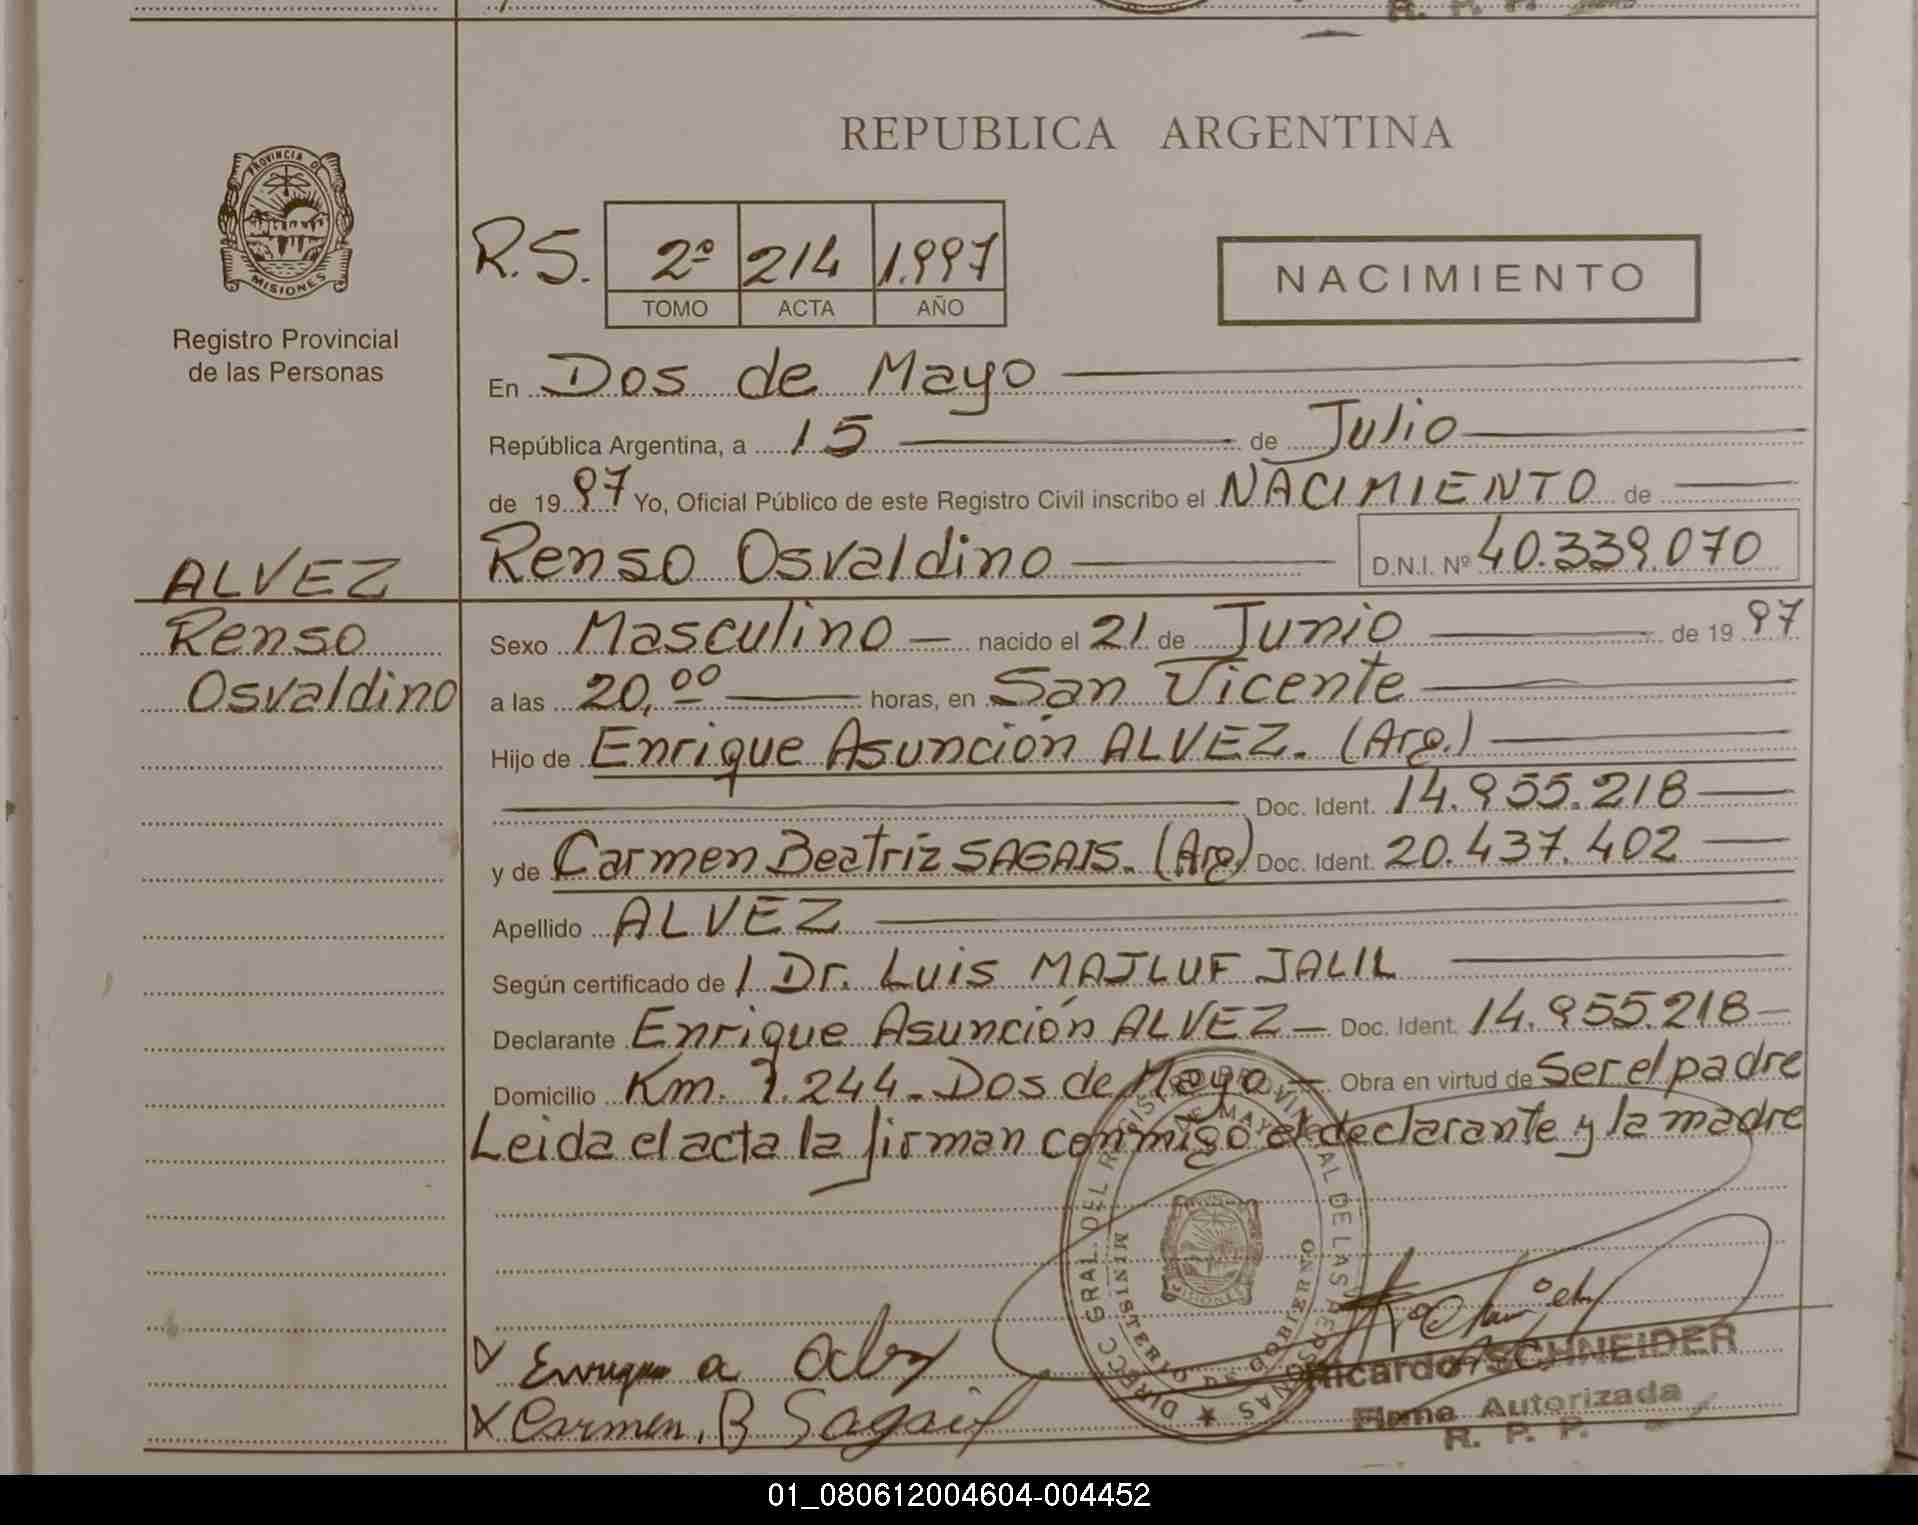 REPUBLICA ARGENTINA
PROVINCIA DE
MISIONES
Registro Provincial
de las Personas
R.S. 2º 214 1.997
TOMO ACTA AÑO
NACIMIENTO
En Dos de Mayo
República Argentina, a 15 de Julio
de 1997 Yo, Oficial Público de este Registro Civil inscribo el NACIMIENTO de
Renso Osvaldino D.N.I. Nº 40.339.070
ALVEZ
Renso
Osvaldino
Sexo Masculino nacido el 21 de Junio de 1997
a las 20,00 horas, en San Vicente
Hijo de Enrique Asunción ALVEZ. (Arg.)
Doc. Ident. 14.955.218
y de Carmen Beatriz SAGAIS. (Arg) Doc. Ident. 20.437.402
Apellido ALVEZ
Según certificado de / Dr. Luis MAJLUF JALIL
Declarante Enrique Asunción ALVEZ Doc. Ident. 14.955.218
Domicilio Km. 1.244 Dos de Mayo Obra en virtud de Ser el padre
Leida el acta la firman conmigo el declarante y la madre
DIRECC GRAL. DEL REGISTRO PROVINCIAL DE LAS PERSONAS
MINISTERIO DE GOBIERNO
DE MAYO
MISIONES
Enrique a
Carmen. B Sagais
Ricardo SCHNEIDER
Firma Autorizada
R. P. P.
R. P. P.
01_080612004604-004452